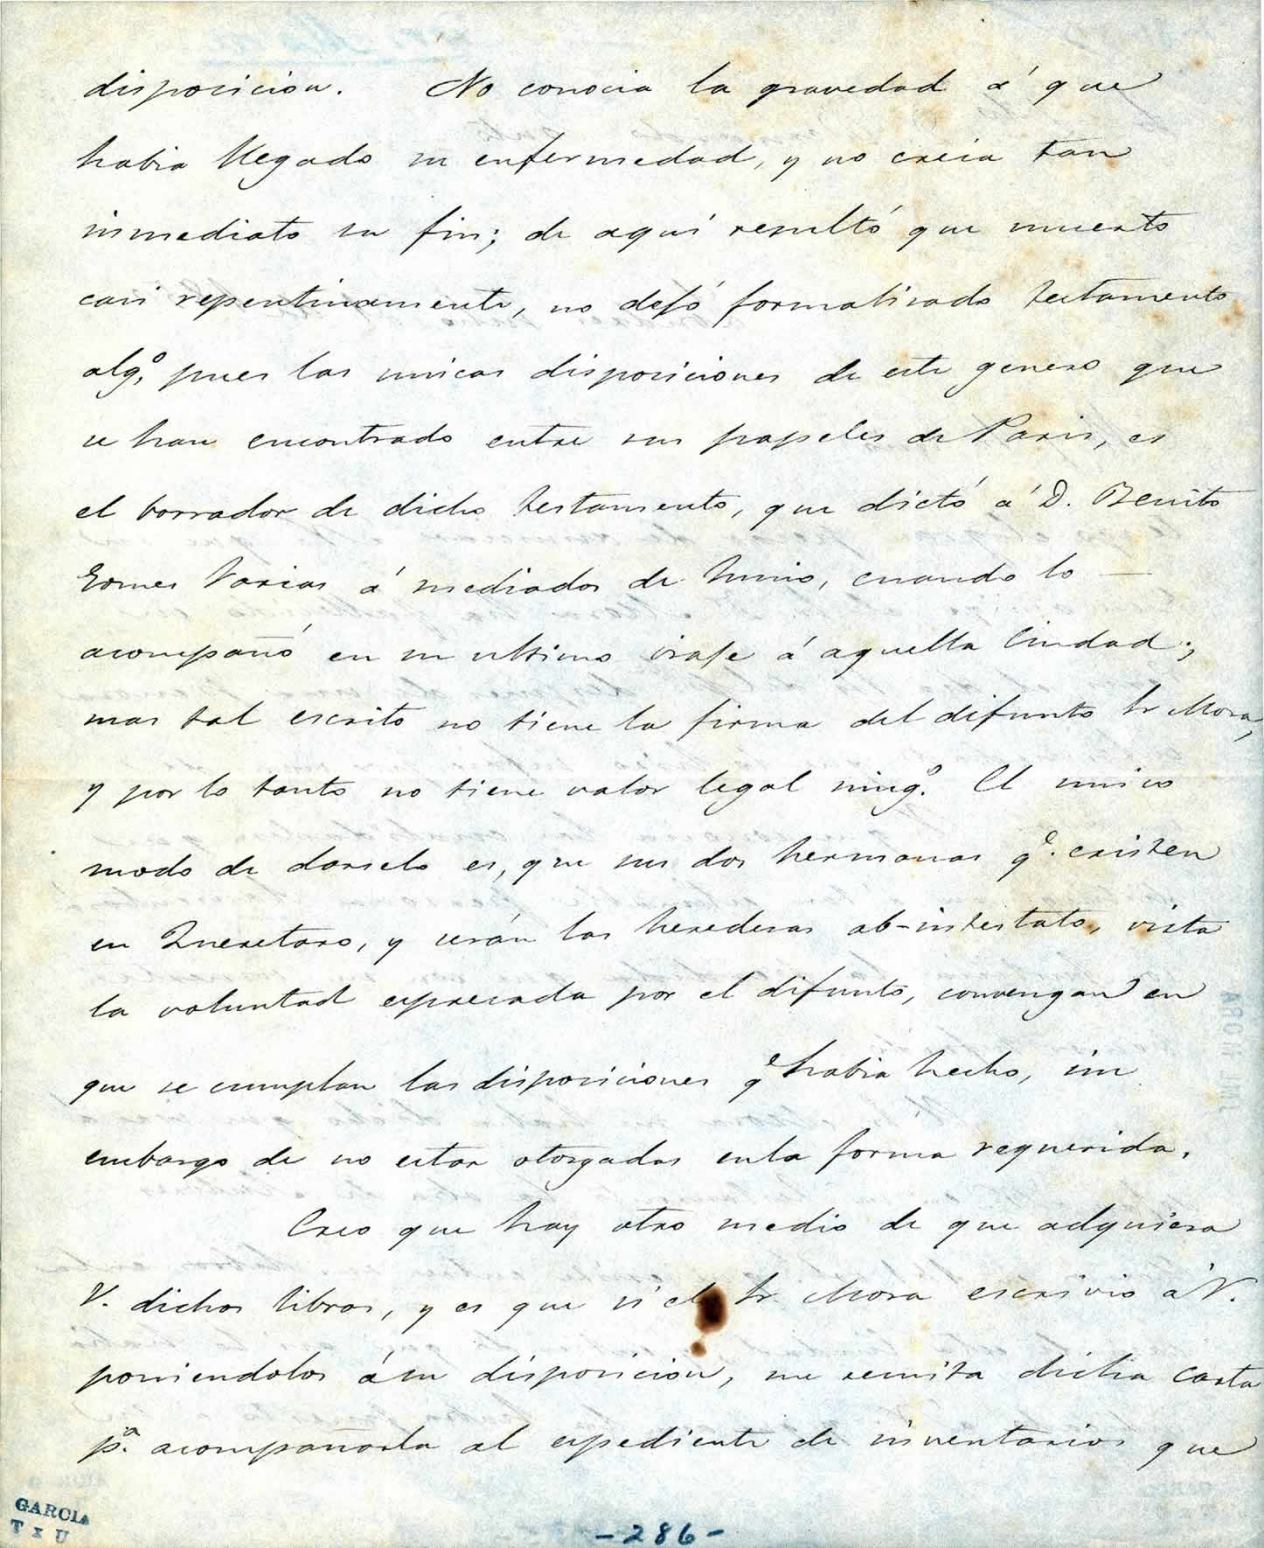 disposicion. No conocia la gravedad á que
habia llegado su enfermedad, y no creia tan
inmediato su fin; de aquí resultó que muerto
casi repentinamente, no dejó formalizado testamento
algº, pues las unicas disposiciones de este genero que
se han encontrado entre sus papeles de Paris, es
el borrador de dicho testamento, que dictó á D. Benito
Gomes Farias á mediados de Junio, cuando lo —
acompañó en su ultimo viaje á aquella Ciudad;
mas tal escrito no tiene la firma del difunto Sr Mora,
y por lo tanto no tiene valor legal ningº. El unico
modo de darselo es, que sus dos hermanas qe. existen
en Queretaro, y serán las herederas ab-intestato, vista
la voluntad espresada por el difunto, convengan en
que se cumplan las disposiciones qe habia hecho, sin
embargo de no estar otorgadas enla forma requerida.
Creo que hay otro medio de que adquiera
V. dichos libros, y es que si el Sr. Mora escrivió á V.
poniendolos ásu disposicion, me remita dicha carta
pª. acompañarla al espediente de inventarios que
GARCIA
T x U
-286-